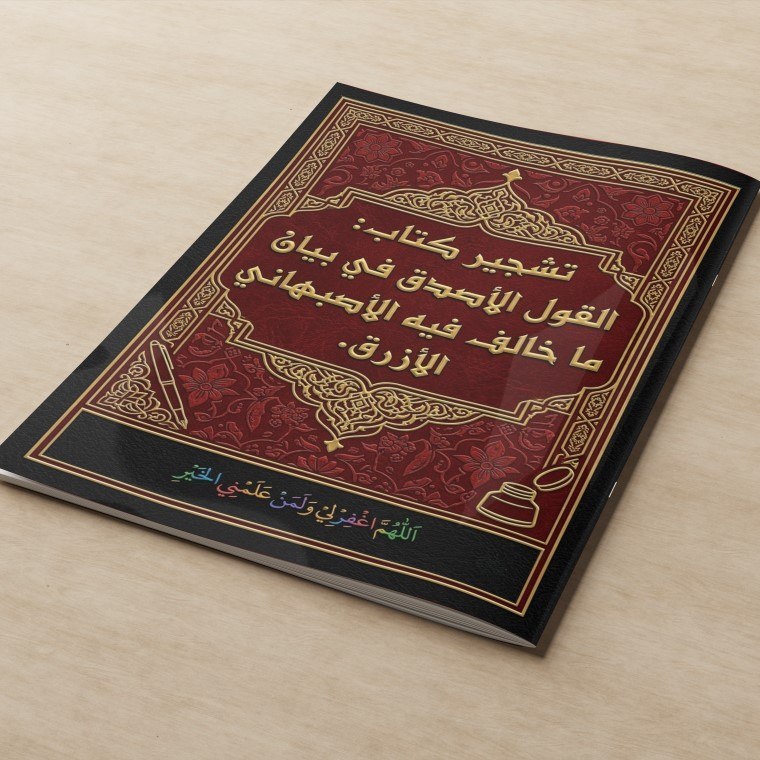 تشجير كتاب:
القول الأصدق في بيان
ما خالف فيه الأصبهاني
الأزرق.
اَللّٰهُمَّ اغْفِرْ لِيْ وَلَمَنْ عَلَمْنِي الْخَيْرِ